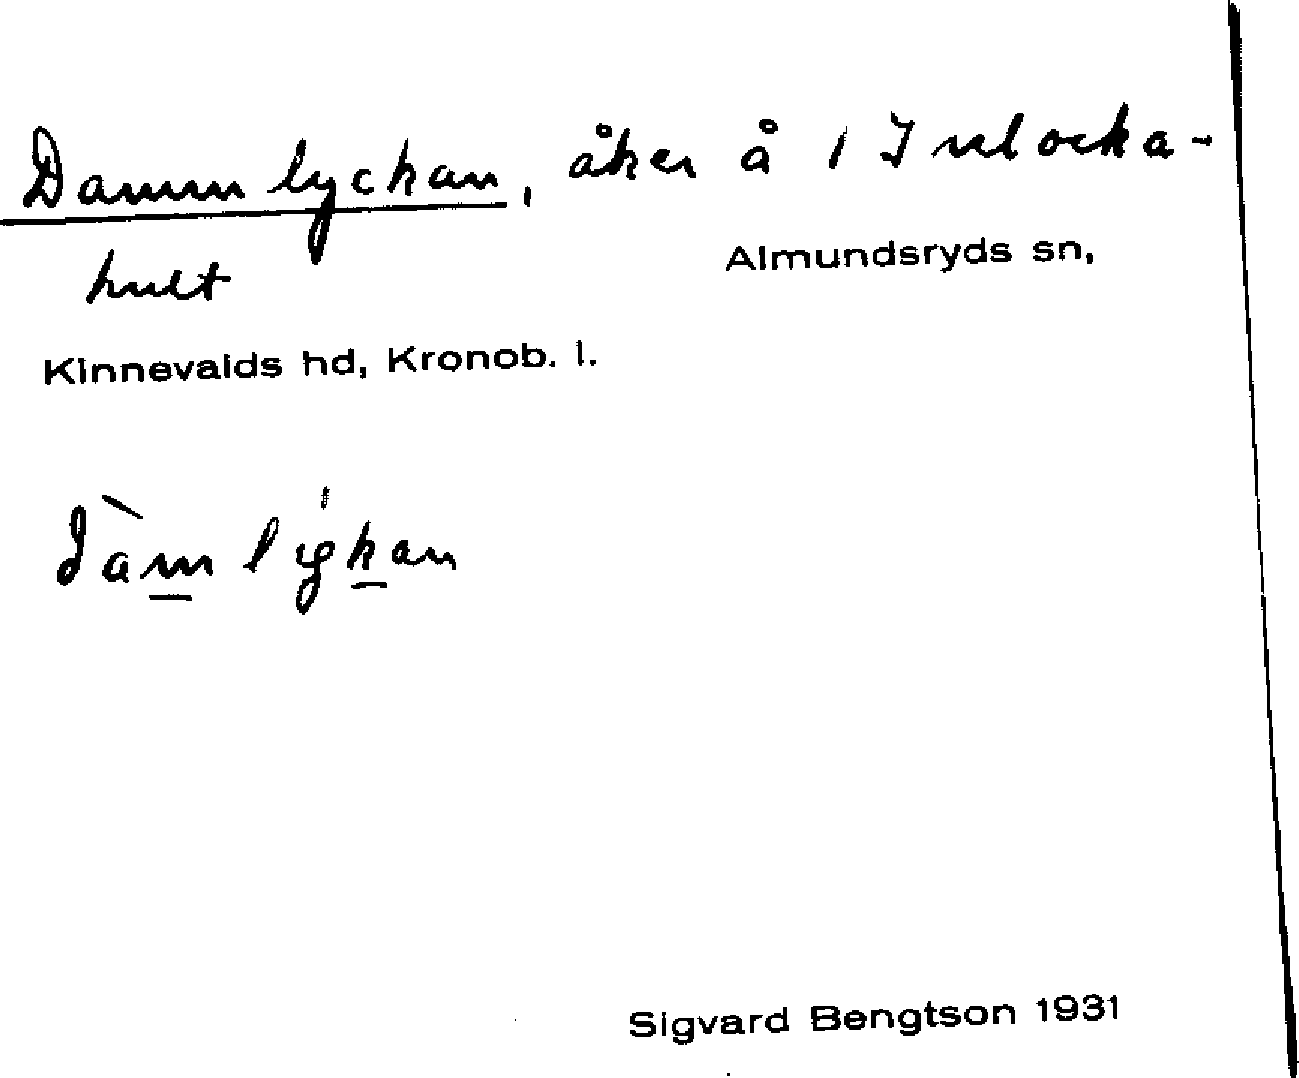 Dammlyckan, åker å 1 Inlocka-
hult
Almundsryds sn,
Kinnevalds hd, Kronob. l.
Sigvard Bengtson 1931